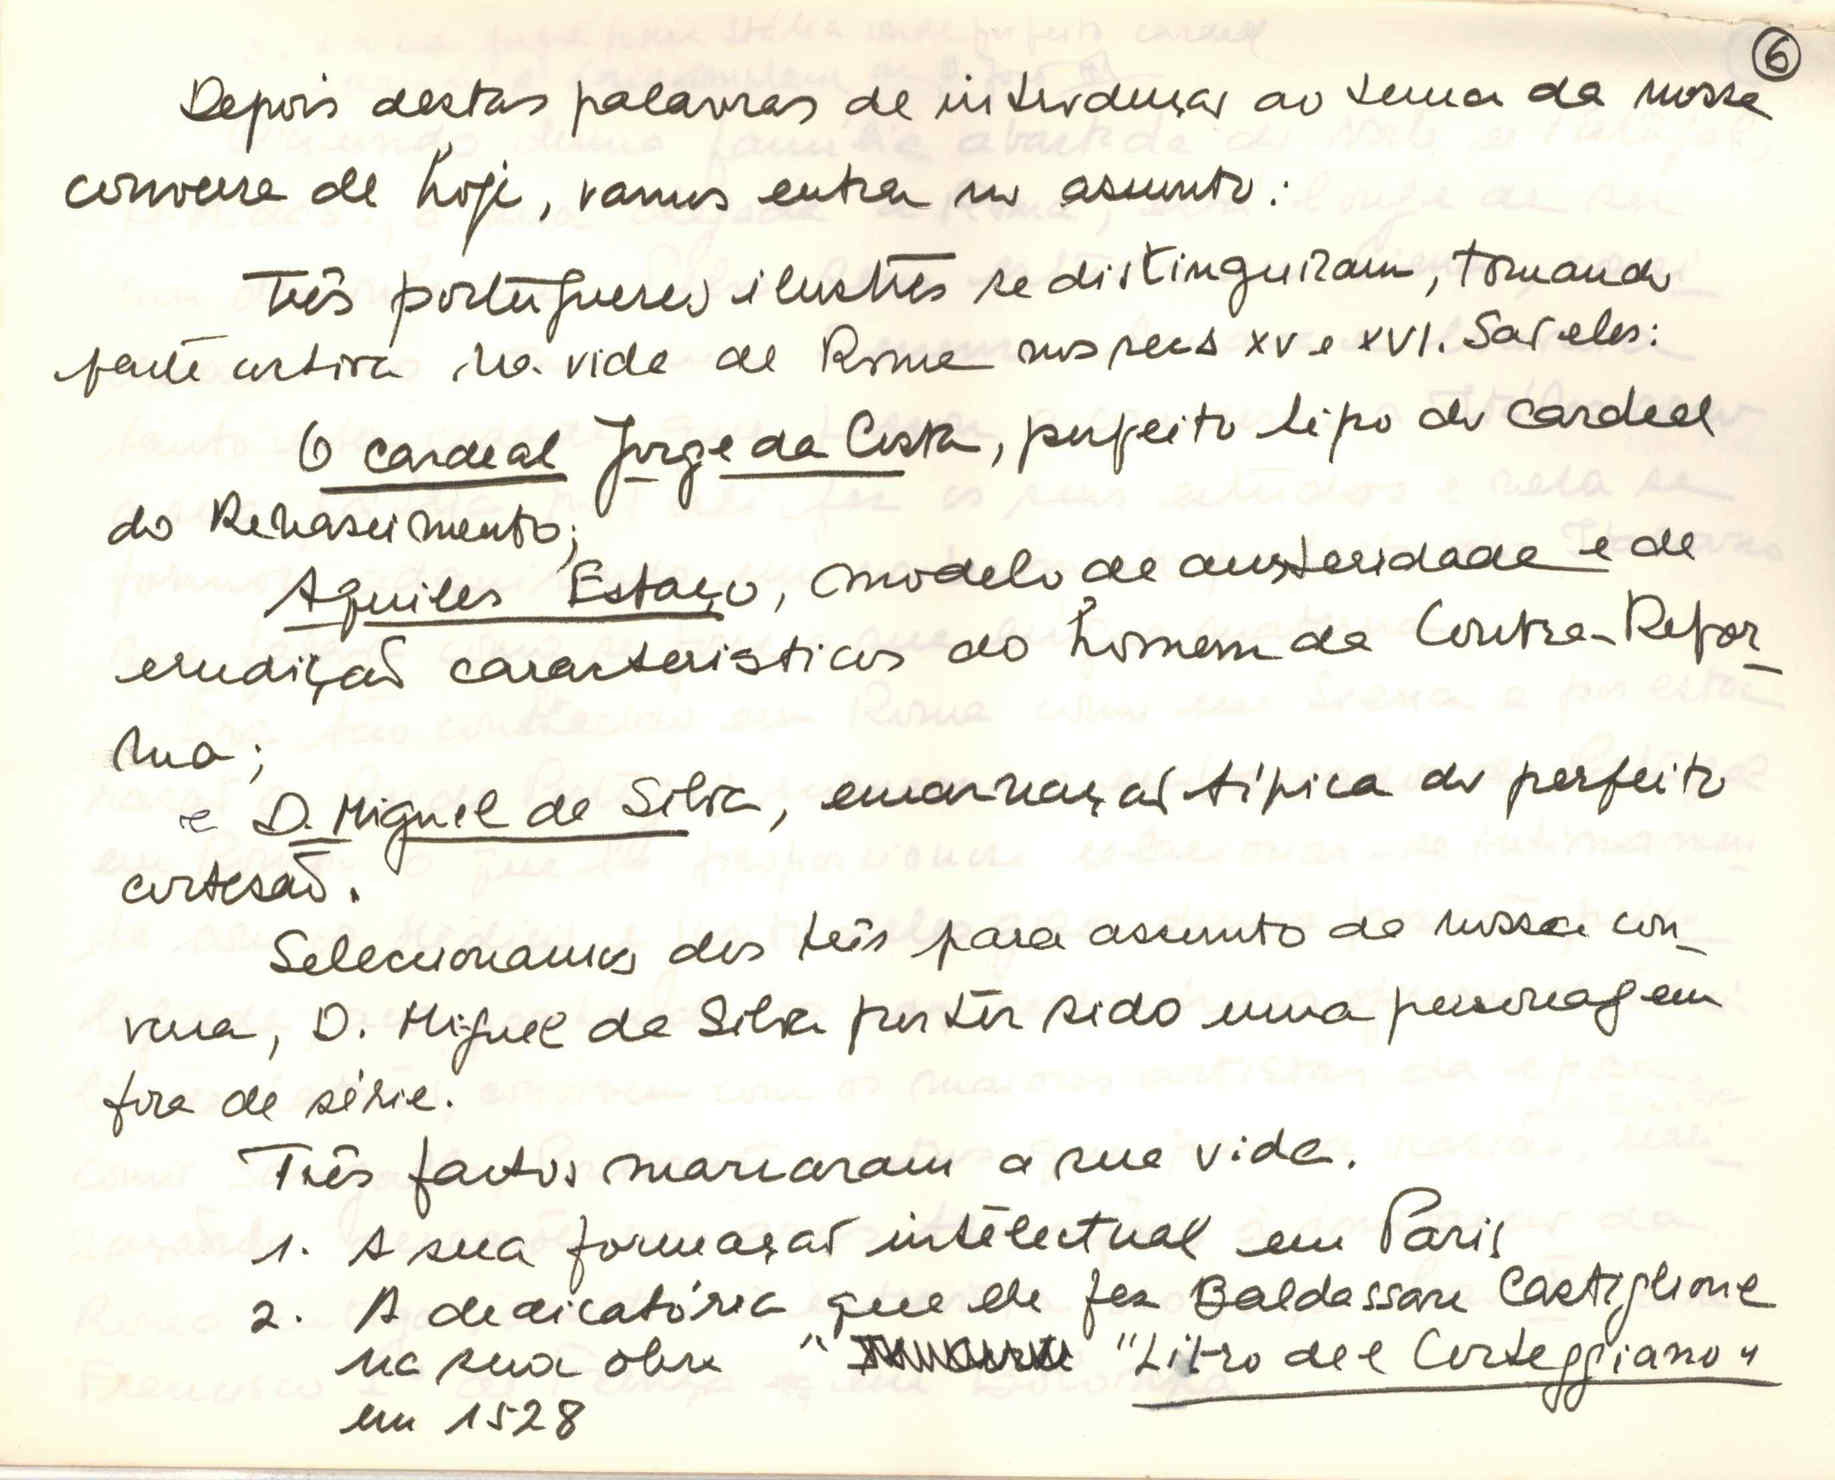 6
Depois destas palavras de introdução ao tema da nossa
conversa de hoje, vamos entrar no assunto:
Três portugueses ilustres se distinguiram, tomando
parte activa na vida de Roma nos secs XV e XVI. São eles:
O cardeal Jorge da Costa, perfeito tipo do cardeal
do Renascimento;
Aquiles Estaço, modelo de austeridade e de
erudição caracteristicos do homem da Contra-Refor-
ma;
e D. Miguel da Silva, encarnação típica do perfeito
cortesão.
Seleccionamos dos três para assunto da nossa con-
versa, D. Miguel da Silva por ter sido uma personagem
fora de série.
Três factos marcaram a sua vida.
1. A sua formação intelectual em Paris
2. A dedicatória que lhe fez Baldassare Castiglione
na sua obra " "Libro del Corteggiano"
em 1528